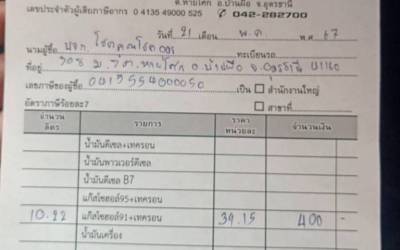 ต.หายโศก อ.บ้านผือ จ.อุดรธานี
เลขประจำตัวผู้เสียภาษีอากร 0 4135 49000 525 042-282700
วันที่ 21 เดือน พ.ค พ.ศ 67
นามผู้ซื้อ หจก. โชคคูณโชค ทะเบียนรถ
ที่อยู่ 308 ม.7 ต.หายโศก อ.บ้านผือ จ.อุดรธานี 41160
เลขภาษีของผู้ซื้อ 0415554000050 เป็น สำนักงานใหญ่
อัตราภาษีร้อยละ7 สาขาที่
จำนวน ลิตร รายการ ราคา หน่วยละ จำนวนเงิน
น้ำมันดีเซล+เทครอน
น้ำมันพาวเวอร์ดีเซล
น้ำมันดีเซล B7
แก๊สโซฮอล์95+เทครอน
10.22 แก๊สโซฮอล์91+เทครอน 39.15 400 -
น้ำมันเครื่อง